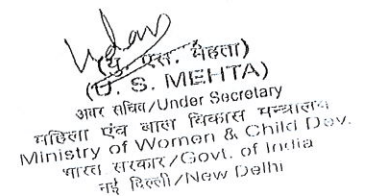 (यु. एस. मेहता)
(U. S. MEHTA)
अवर सचिव/Under Secretary
महिला एंव बाल विकास मन्त्रालय
Ministry of Women & Child Dev.
भारत सरकार/Govt. of India
नई दिल्ली/New Delhi